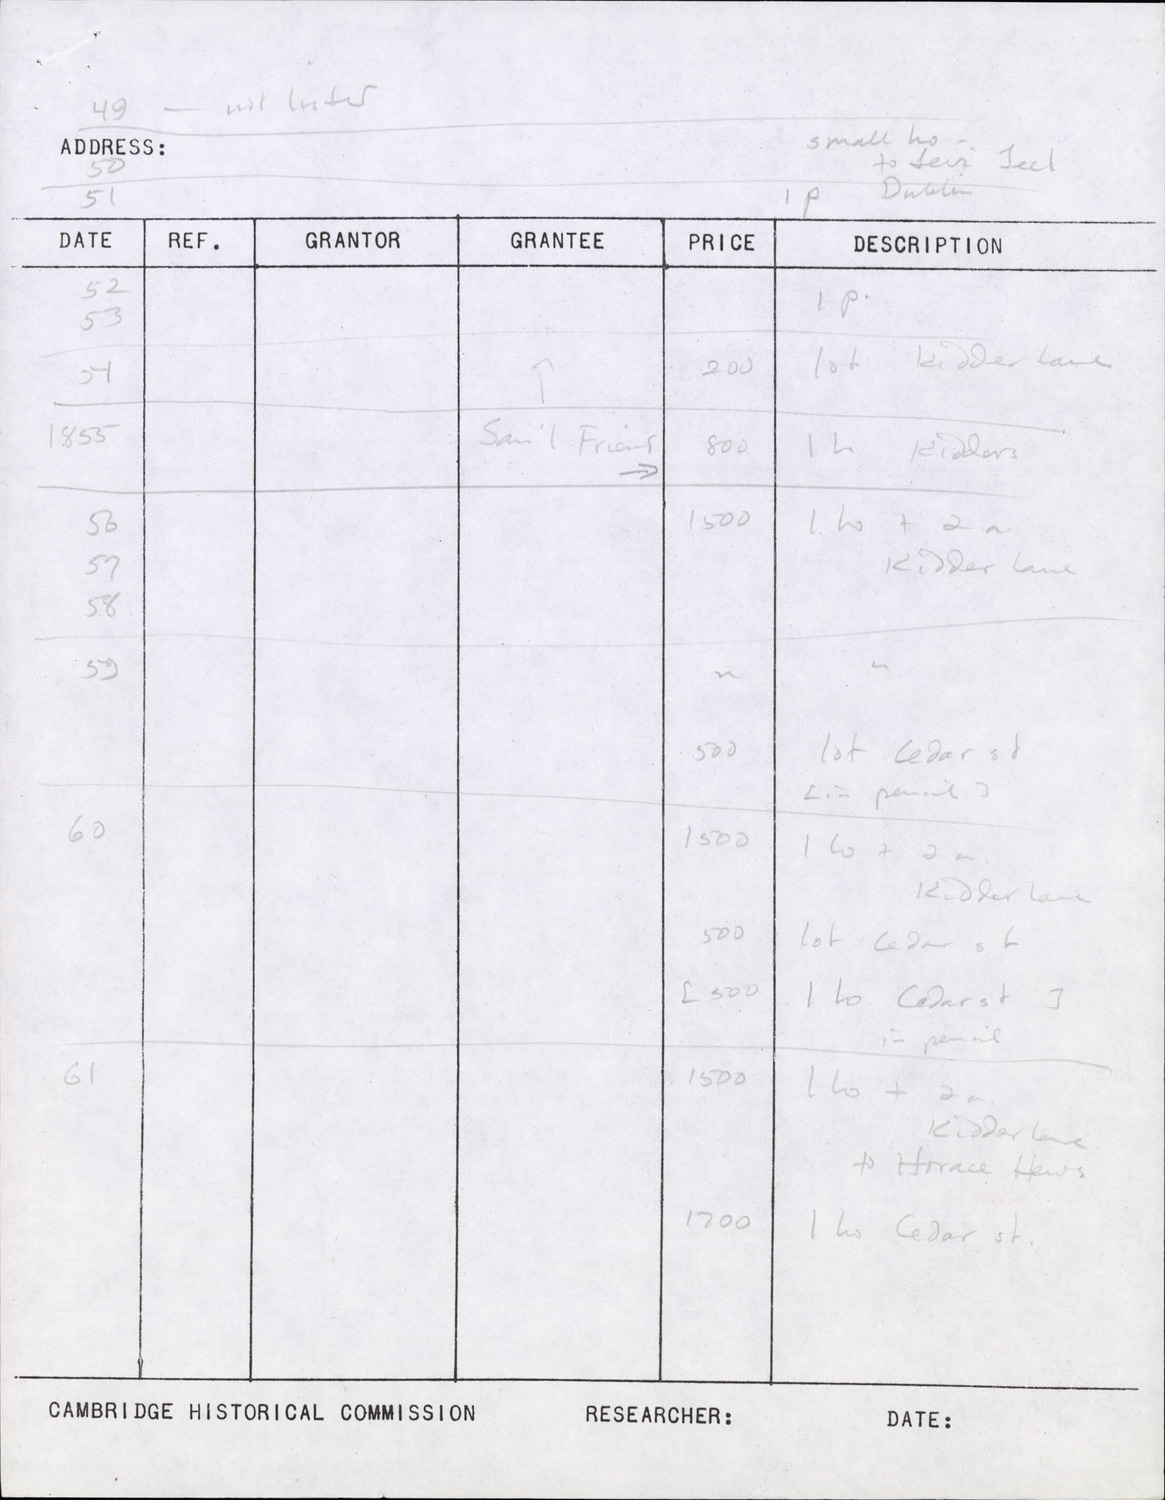 49 — not listed
ADDRESS:
small ho -
50
to Levi
51
1 p Dublin
DATE REF. GRANTOR GRANTEE PRICE DESCRIPTION
52
1 p.
53
54 200 lot Kidder Lane
1855 Sam'l Friend 800 1 h Kidders
56 1500 1 ho + 2 a.
57 Kidder Lane
58
59 " "
500 lot Cedar st
[in pencil]
60 1500 1 ho + 2 a.
Kidder Lane
500 lot Cedar st
[500 1 ho Cedar st ]
in pencil
61 1500 1 ho + 2 a.
Kidder Lane
to Horace Hews
1700 1 ho Cedar st.
CAMBRIDGE HISTORICAL COMMISSION RESEARCHER: DATE: